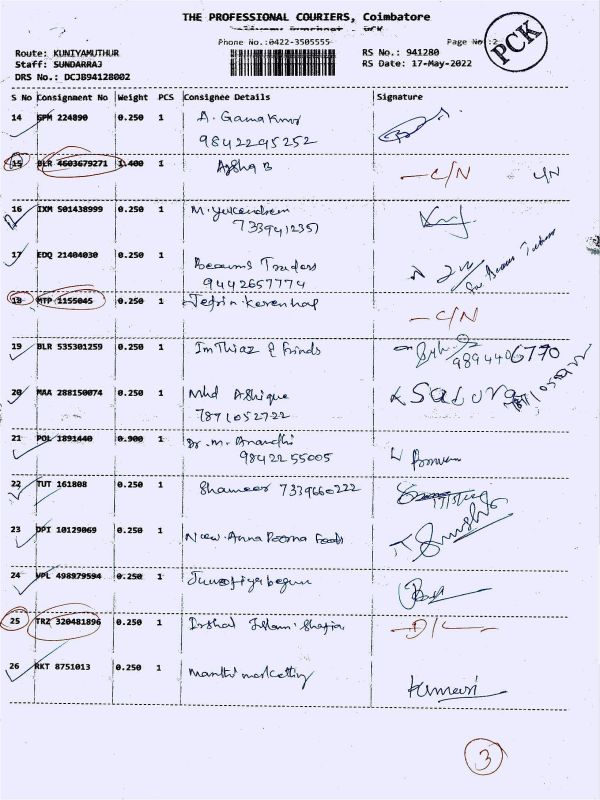 THE PROFESSIONAL COURIERS, Coimbatore
Phone No.:0422-3505555
Page No.:2
PCK
Route: KUNIYAMUTHUR
RS No.: 941280
Staff: SUNDARRAJ
RS Date: 17-May-2022
DRS No.: DCJ894128002
S No Consignment No Weight PCS Consignee Details Signature
14 GPM 224890 0.250 1 A. Gama
9842295252
15 BLR 4603679271 1.400 1 Aysha B
C/N C/N
16 IXM 501438999 0.250 1 M.
7339412357
17 EDQ 21404030 0.250 1
Traders
9442657774
18 MTP 1155045 0.250 1 Jefrin
C/N
19 BLR 535301259 0.250 1 ImThiaz & Frinds
9894406770
20 MAA 288150074 0.250 1 Mhd Ashique
7871052722
21 POL 1891440 0.900 1 Dr. M. Anandhi
9842255005
22 TUT 161808 0.250 1 Shameer 7339660222
23 DPI 10129069 0.250 1 New Anna Poorna Foods
24 VPL 498979594 0.250 1
25 TRZ 320481896 0.250 1 Irshad Islam
D/L
26 RKT 8751013 0.250 1 Manthi marketting
Kumari
3